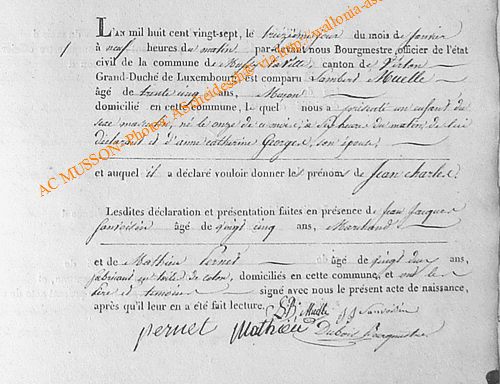 L'AN mil huit cent vingt-sept, le treizième jour du mois de janvier
à neuf heures du matin par-devant nous Bourgmestre officier de l'état
civil de la commune de Ville, canton de Virton
Grand-Duché de Luxembourg, est comparu Lambert Muelle
âgé de trente cinq ans, Maçon
domicilié en cette commune, le quel nous a présenté un enfant du
sexe masculin, né le onze de ce mois, à six heures du matin, de lui
déclarant et d'anne catherine Georges, son épouse
et auquel il a déclaré vouloir donner les prénoms de Jean charles
Lesdites déclaration et présentation faites en présence de Jean Jacques
âgé de vingt cinq ans, Marchand
et de Mathieu Pernet âgé de vingt deux ans,
fabricant en toile de coton, domiciliés en cette commune, et ont le
père et témoins signé avec nous le présent acte de naissance,
après qu'il leur en a été fait lecture. Muelle
pernet Mathieu Dubois Bourgmestre
AC MUSSON- Photos: Ascheidesing via http://wallonia-as